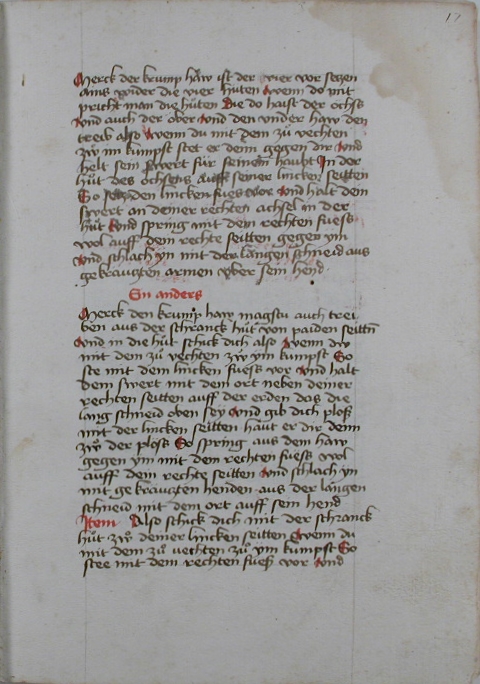 17
Merck der krump haw ist der vier vor setzen
ains wider die vier hüten wenn do mit
pricht man die hüten Die do haist der ochss
vnd auch der ober vnd den vnder haw den
treib also Wenn du mit dem zü vechten
zw im kumpst stet er denn gegen dir vnd
helt sein swert für seinem haupt In der
hüt des ochsens auff seiner lincken seitten
So setz den lincken fuess vor vnd halt dein
swert an deiner rechten achsel in der
hüt vnd spring mit dem rechten fuess
wol auff dein rechte seitten gegen ym
vnd schlach yn mit der langen schneid aus
gekrautzten armen vber sein hend
Ein anders
Merck den krump haw magstu auch trei
ben aus der schranck hüt von paiden seittñ
vnd in die hüt schick dich also Wenn dw
mit dem zü vechten zw ym kumpst So
ste mit dem lincken fuess vor vnd halt
dein swert mit dem ort neben deiner
rechten seitten auff der erden das die
lang schneid oben sey vnd gib dich plos
mit der lincken seitten haut er dir denn
zw der ploss So spring aus dem haw
gegen ym mit dem rechten fuess wol
auff dein rechte seitten vnd schlach yn
mit gekrautzten henden aus der langen
schneid mit dem ort auff sein hend
Item Also schick dich mit der schranck
hüt zw deiner lincken seitten wenn du
mit dem zu vechten zu ym kumpst So
stee mit dem rechten fuess vor vnd